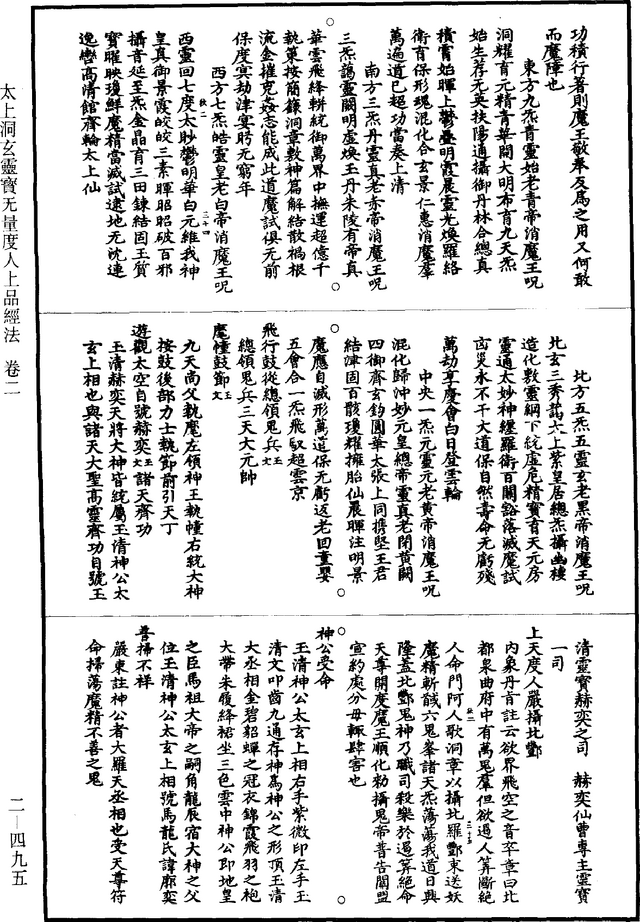 太上洞玄靈寶无量度人上品經法 卷二
二—四九五
功積行著則魔王敬奉友爲之用又何敢
而魔障也
東方九炁青靈始老青帝消魔王呪
洞耀育元精青華開大明布育九天炁
始生荐无英扶陽通攝御丹林合總真
積霄始暉上鬱疊明霞晨靈光煥羅絡
衛育保形瑰混化合玄景仁惠消魔羣
萬遍道已超功當奏上清
南方三炁丹靈真老赤帝消魔王呪
三炁藹靈闕明虛煥王丹朱陵有帝真
華雲飛絳軿統御萬界中撫運超億千
執策按簡籙洞章數神篇解結散禍根
流金摧兇姦志能威此道魔試俱无前
保度冥劫津宴眄无窮年
西方七炁皓靈皇老白帝消魔王呪
西靈回七度太眇鬱明華白元維我神
皇真御景霞皎皎三素暉昭昭破百邪
攝音延至炁金晶育三田鍊結固王質
寶曜映瓊鮮魔精當滅試遠地无沈連
逸轡高清館齊輪太上仙
北方五炁五靈玄老黑帝消魔王呪
北玄三秀藹六上紫皇居總炁攝幽樓
造化敷靈綱下統虛危精寶育天元房
靈通太妙神纏羅衛百關豁落滅魔試
凶災永不干大道保自然壽命无虧殘
萬劫享慶會白日登雲輪
中央一炁元靈元老黃帝消魔王呪
混化歸沖妙元皇總帝靈真老閉黃闕
四御齊玄鈞圓華太張上同携堅王君
結津固百骸瓊耀擁胎仙晨暉注明景
魔應自滅形萬道保元虧返老回童嬰
五會合一炁飛馭超雲京
飛行鼓從總領鬼兵
總領鬼兵三天大元帥
麾幢鼓節
九天尚父執麾左領神王執幢右統大神
按鼓後部力士執節前引天丁
遊觀太空自號赫奕 諸天齊功
玉清赫奕天將大神皆統屬玉清神公太
玄上相也與諸天大聖高靈齊功自號玉
清靈寶赫奕之司 赫奕仙曹專主靈寶
一司
上天度人嚴攝北酆
內象丹旨註云欲界飛空之音卒章曰北
都泉曲府中有萬鬼羣但欲遏人算斷絕
人命門阿人歌洞章以攝北羅酆束送妖
魔精斬馘六鬼峯諸天炁蕩蕩我道日興
隆蓋北酆鬼神乃職司殺樂於遏算絕命
天尊開度魔王順化勑攝鬼帝普告閻盟
宣約處分毋輒肆害也
神公受命
玉清神公太玄上相右手紫微印左手玉
清文叩齒九通存神爲神公之形頂玉清
大丞相金碧貂蟬之冠衣錦霞飛羽之袍
大帶朱履絳裙坐三色雲中神公即地皇
之臣馬祖大帝之嗣角龍辰宿大神之父
位玉清神公太玄上相號馬龍氏諱靡奕
普掃不祥
嚴東註神公者大羅天丞相也受天尊符
命掃蕩魔精不善之鬼